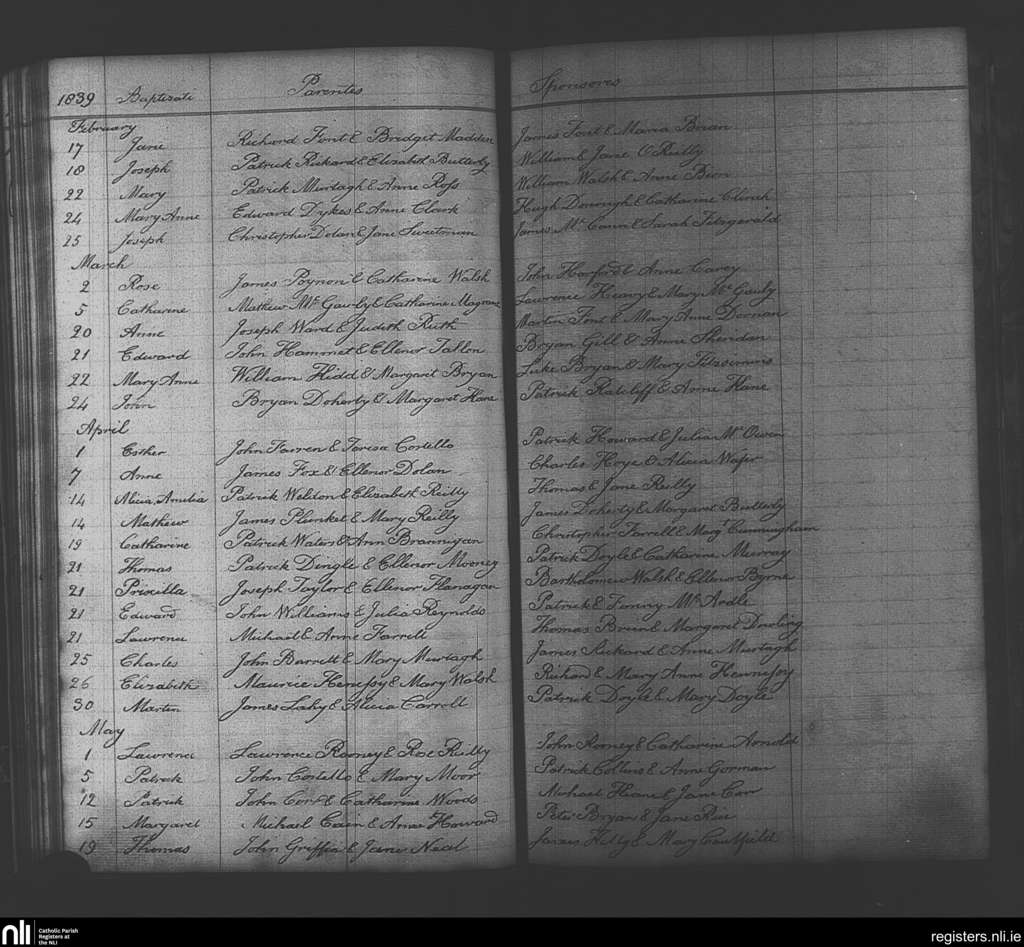 1839 Baptizati Parentes Sponsores
February
17 Jane Richard Font & Bridget Madden James Font & Maria Brian
18 Joseph Patrick Rickard & Elizabet Butterly William & Jane O Reilly
22 Mary Patrick Murtagh & Anne Ross William Walsh & Anne Birn
24 Mary Anne Edward Dykes & Anne Clark Hugh Donough & Catharine Clinch
25 Joseph Christopher Dolan & Jane Sweetman James Mc Cann & Sarah Fitzgerald
March
2 Rose James Poynon & Catharine Walsh John Harford & Anne Carey
5 Catharine Mathew Mc Gawly & Catharine Magrane Lawrence Heavy & Mary Mc Gauly
20 Anne Joseph Ward & Judith Ruth Martin Font & Mary Anne Doonan
21 Edward John Hammet & Ellenor Tallon Bryan Gill & Anne Sheridan
22 Mary Anne William Kidd & Margaret Bryan Luke Bryan & Mary Fitzsimins
24 John Bryan Doherty & Margaret Kane Patrick Ratcliff & Anne Kane
April
1 Esther John Fairen & Teresa Costello Patrick Howard & Julia Mc Owen
7 Anne James Fox & Ellenor Dolan Charles Hoye & Alicia Wafer
14 Alicia, Amelia Patrick Weldon & Elizabeth Reilly Thomas & Jane Reilly
14 Mathew James Plunket & Mary Reilly James Doherty & Margaret Butterly
19 Catharine Patrick Waters & Ann Brannigan Christopher Farrell & Margt Cunningham
21 Thomas Patrick Dingle & Ellenor Mooney Patrick Doyle & Catharine Murray
21 Priscilla Joseph Taylor & Ellenor Flanagan Bartholomew Walsh & Ellenor Byrne
21 Edward John Williams & Julia Reynolds Patrick & Fanny Mc Ardle
21 Lawrence Michael & Anne Farrell Thomas Brien & Margaret Dowling
25 Charles John Barrett & Mary Murtagh James Rickard & Anne Murtagh
26 Elizabeth Maurice Henessy & Mary Walsh Richard & Mary Anne Hennessy
30 Martin James Lahy & Alicia Carroll Patrick Doyle & Mary Doyle
May
1 Lawrence Lawrence Rooney & Rose Reilly John Rooney & Catharine Arnold
5 Patrick John Costello & Mary Moor Patrick Collins & Anne Gorman
12 Patrick John Corr & Catharine Woods Michael Keane & Jane Carr
15 Margaret Michael Cain & Anne Howard Peter Bryan & Jane Rice
19 Thomas John Griffin & Jane Neal James Kelly & Mary Caulfield
nli Catholic Parish
Registers at
the NLI
registers.nli.ie